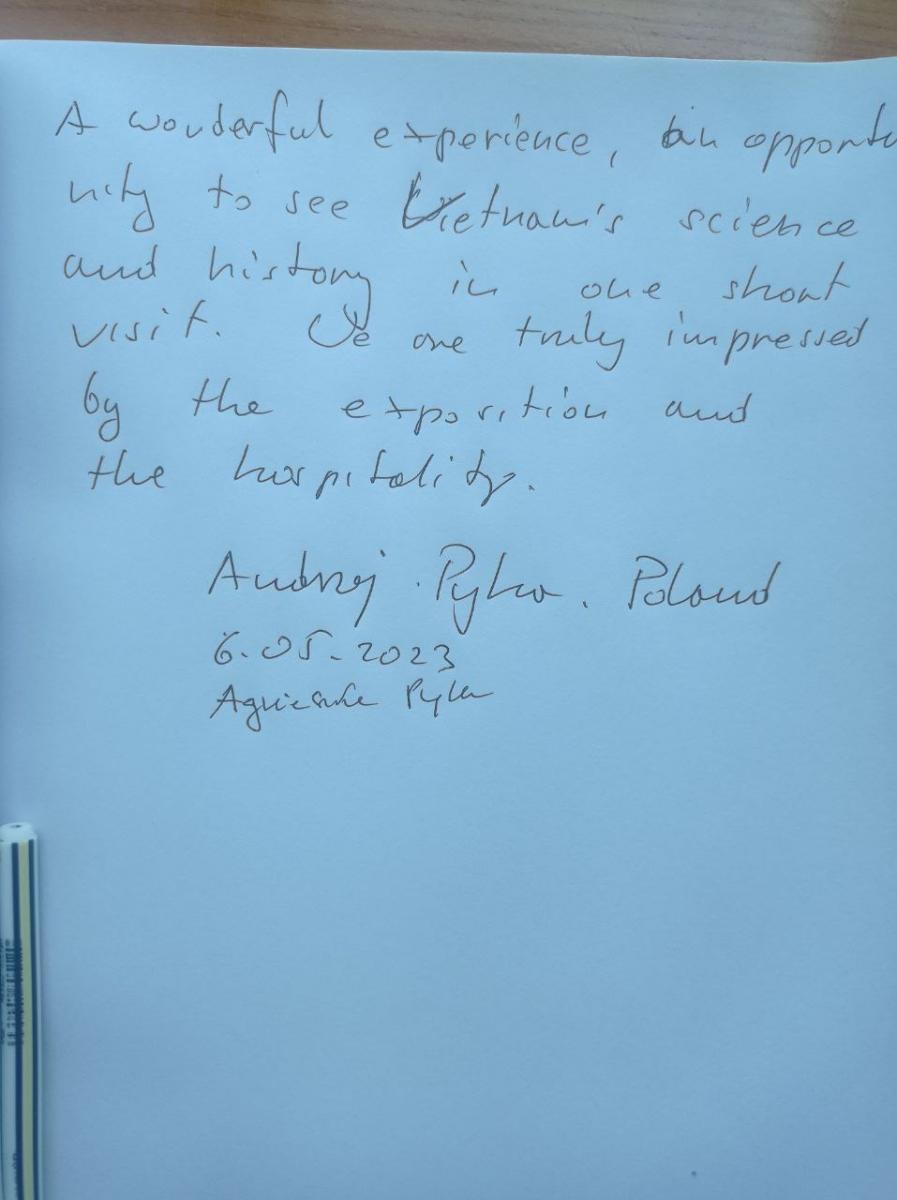 A wonderful experience, an opportu
nity to see Vietnam's science
and history in one short
visit. We are truly impressed
by the exposition and
the hospitality.
Andrzej Pylka. Poland
6.05.2023
Agnieszka Pylka